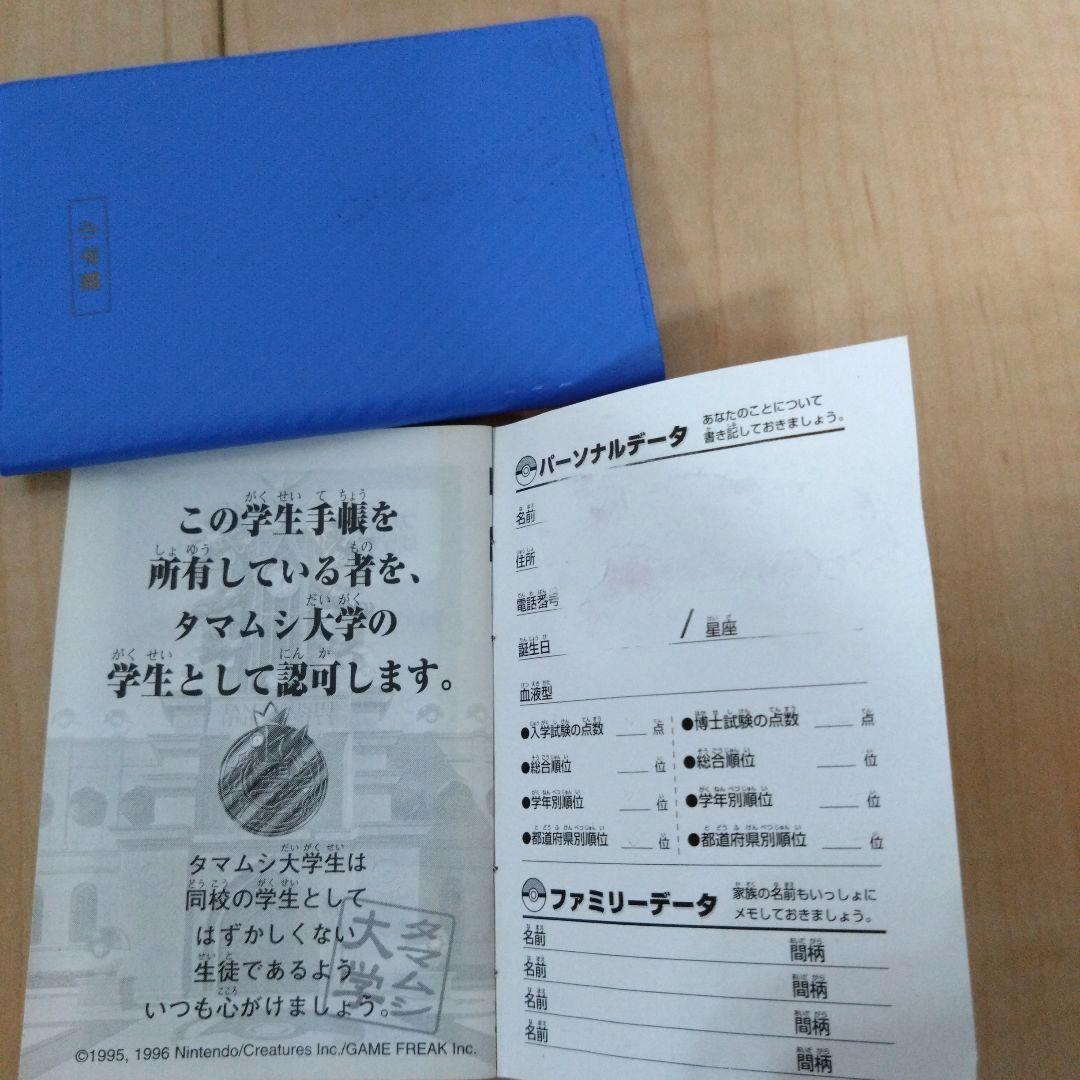 小学館
この学生手帳を
所有している者を、
タマムシ大学の
学生として認可します。
タマムシ大学生は
同校の学生として
はずかしくない
生徒であるよう
いつも心がけましょう。
タマムシ
大学
©1995, 1996 Nintendo/Creatures Inc./GAME FREAK Inc.
パーソナルデータ
あなたのことについて
書き記しておきましょう。
名前
住所
電話番号
誕生日 / 星座
血液型
●入学試験の点数 点
●総合順位 位
●学年別順位 位
●都道府県別順位 位
●博士試験の点数 点
●総合順位 位
●学年別順位 位
●都道府県別順位 位
ファミリーデータ
家族の名前もいっしょに
メモしておきましょう。
名前 間柄
名前 間柄
名前 間柄
名前 間柄